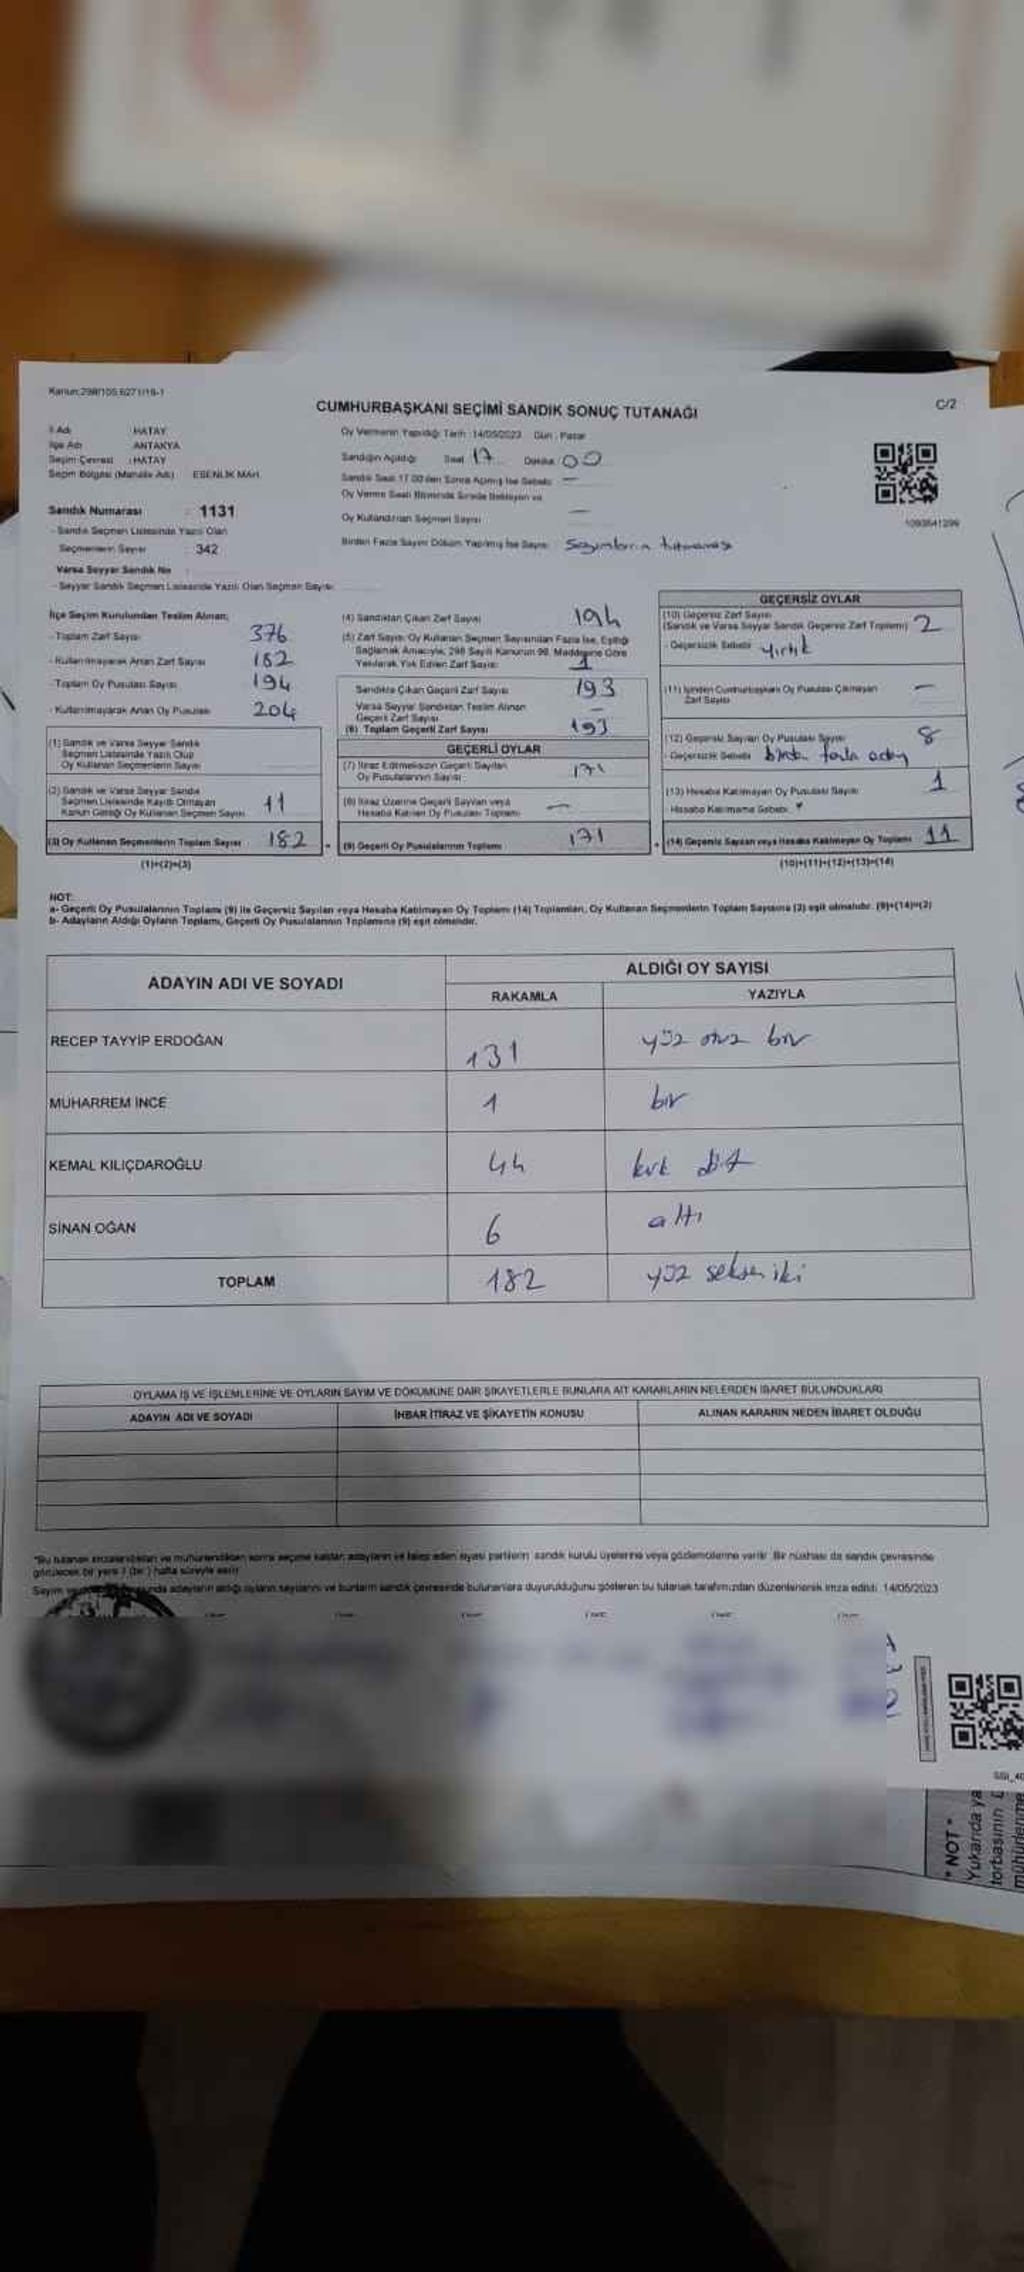 Kanun:298/105 6271/19-1
C/2
CUMHURBAŞKANI SEÇİMİ SANDIK SONUÇ TUTANAĞI
İl Adı : HATAY
İlçe Adı : ANTAKYA
Seçim Çevresi : HATAY
Seçim Bölgesi (Mahalle Adı) : ESENLİK MAH.
Sandık Numarası : 1131
- Sandık Seçmen Listesinde Yazılı Olan
Seçmenlerin Sayısı : 342
Varsa Seyyar Sandık No :
- Seyyar Sandık Seçmen Listesinde Yazılı Olan Seçmen Sayısı:
Oy Vermenin Yapıldığı Tarih : 14/05/2023 Gün : Pazar
Sandığın Açıldığı Saat 17 Dakika 00
Sandık Saat 17.00'den Sonra Açılmış İse Sebebi: —
Oy Verme Saati Bitiminde Sırada Bekleyen ve
Oy Kullandırılan Seçmen Sayısı —
Birden Fazla Sayım Döküm Yapılmış İse Sayısı:
1093641299
İlçe Seçim Kurulundan Teslim Alınan;
- Toplam Zarf Sayısı 376
- Kullanılmayarak Artan Zarf Sayısı 182
- Toplam Oy Pusulası Sayısı 194
- Kullanılmayarak Artan Oy Pusulası 204
(1) Sandık ve Varsa Seyyar Sandık
Seçmen Listesinde Yazılı Olup
Oy Kullanan Seçmenlerin Sayısı
(2) Sandık ve Varsa Seyyar Sandık
Seçmen Listesinde Kayıtlı Olmayan
Kanun Gereği Oy Kullanan Seçmen Sayısı 11
(3) Oy Kullanan Seçmenlerin Toplam Sayısı 182
(1)+(2)=(3)
(4) Sandıktan Çıkan Zarf Sayısı 194
(5) Zarf Sayısı Oy Kullanan Seçmen Sayısından Fazla İse, Eşitliği
Sağlamak Amacıyla, 298 Sayılı Kanunun 98. Maddesine Göre
Yakılarak Yok Edilen Zarf Sayısı 1
Sandıkta Çıkan Geçerli Zarf Sayısı 193
Varsa Seyyar Sandıktan Teslim Alınan
Geçerli Zarf Sayısı —
(6) Toplam Geçerli Zarf Sayısı 193
GEÇERLİ OYLAR
(7) İtiraz Edilmeksizin Geçerli Sayılan
Oy Pusulalarının Sayısı 171
(8) İtiraz Üzerine Geçerli Sayılan veya
Hesaba Katılan Oy Pusulası Toplamı —
(9) Geçerli Oy Pusulalarının Toplamı 171
GEÇERSİZ OYLAR
(10) Geçersiz Zarf Sayısı
(Sandık ve Varsa Seyyar Sandık Geçersiz Zarf Toplamı) 2
- Geçersizlik Sebebi yırtık
(11) İçinden Cumhurbaşkanı Oy Pusulası Çıkmayan
Zarf Sayısı —
(12) Geçersiz Sayılan Oy Pusulası Sayısı 8
- Geçersizlik Sebebi birden fazla aday
(13) Hesaba Katılmayan Oy Pusulası Sayısı 1
- Hesaba Katılmama Sebebi
(14) Geçersiz Sayılan veya Hesaba Katılmayan Oy Toplamı 11
(10)+(11)+(12)+(13)=(14)
NOT:
a- Geçerli Oy Pusulalarının Toplamı (9) ile Geçersiz Sayılan veya Hesaba Katılmayan Oy Toplamı (14) Toplamları, Oy Kullanan Seçmenlerin Toplam Sayısına (3) eşit olmalıdır. (9)+(14)=(3)
b- Adayların Aldığı Oyların Toplamı, Geçerli Oy Pusulalarının Toplamına (9) eşit olmalıdır.
ADAYIN ADI VE SOYADI ALDIĞI OY SAYISI
RAKAMLA YAZIYLA
RECEP TAYYİP ERDOĞAN 131 yüz otuz bir
MUHARREM İNCE 1 bir
KEMAL KILIÇDAROĞLU 44 kırk dört
SİNAN OĞAN 6 altı
TOPLAM 182 yüz seksen iki
OYLAMA İŞ VE İŞLEMLERİNE VE OYLARIN SAYIM VE DÖKÜMÜNE DAİR ŞİKAYETLERLE BUNLARA AİT KARARLARIN NELERDEN İBARET BULUNDUKLARI
ADAYIN ADI VE SOYADI İHBAR İTİRAZ VE ŞİKAYETİN KONUSU ALINAN KARARIN NEDEN İBARET OLDUĞU
*Bu tutanak imzalandıktan ve mühürlendikten sonra seçime katılan adayların ve talep eden siyasi partilerin sandık kurulu üyelerine veya gözlemcilerine verilir. Bir nüshası da sandık çevresinde
görülecek bir yere 1 (bir) hafta süreyle asılır.
Sayım adayların aldığı oyların sayılarını ve bunların sandık çevresinde bulunanlara duyurulduğunu gösteren bu tutanak tarafımızdan düzenlenerek imza edildi. 14/05/2023
* NOT *
Yukarıda ya
torbasının
mühürlenme